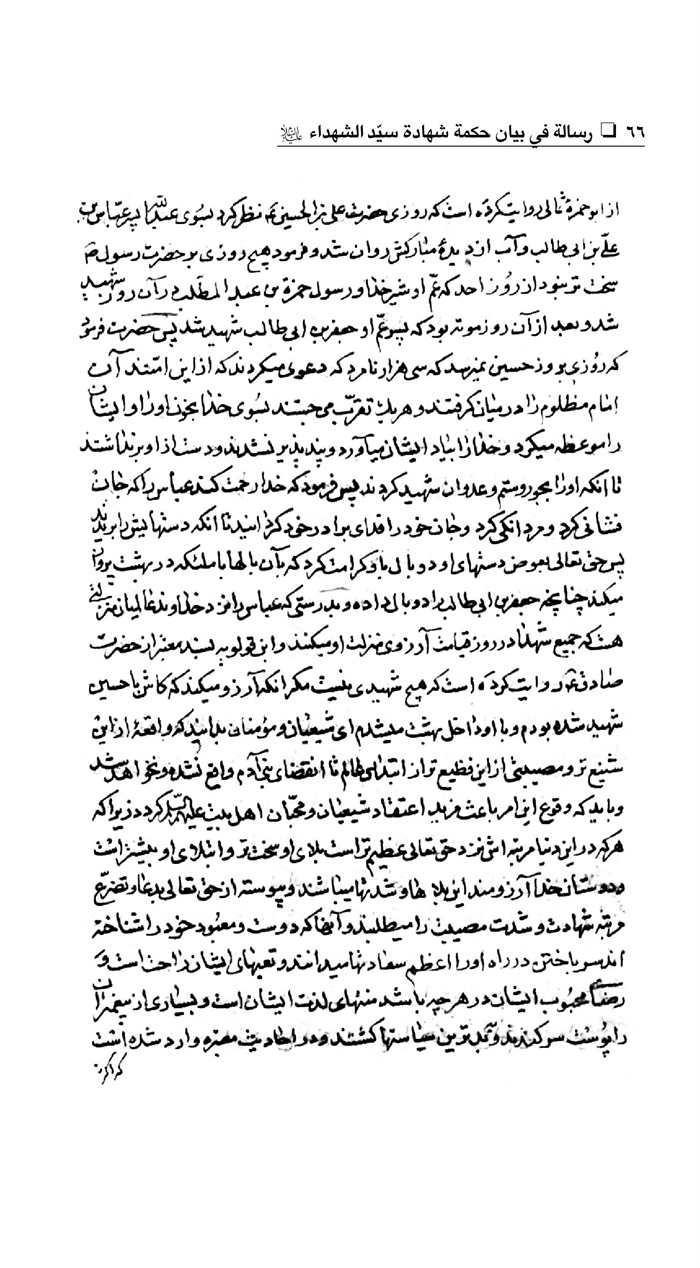 ٦٦ ❏ رسالة في بيان حكمة شهادة سيّد الشهداء عليه السلام
از ابو حمزهٔ ثمالی روایت کرده است که روزی حضرت علی بن الحسین ع نظر کرد بسوی عبد الله پسر عباس بن
علی بن ابی طالب و آب از دیدهٔ مبارکش روان شد و فرمود هیچ روزی بر حضرت رسول ص
سخت تر نبود از روز احد که عم او شیر خدا و رسول حمزة بن عبد المطلب در آن روز شهید
شد و بعد از آن روز موته بود که پسر عم او جعفر بن ابی طالب شهید شد پس حضرت فرمود
که روزی بروز حسین نمیرسد که سی هزار نامرد که دعوی میکردند که از این امتند آن
امام مظلوم را در میان گرفتند و هر یک تقرب می جستند بسوی خدا بخون او و او ایشان
را موعظه میکرد و خدا را بیاد ایشان میآورد و پند پذیر نشدند و دست از او بر نداشتند
تا آنکه او را بجور و ستم و عدوان شهید کردند پس فرمود که خدا رحمت کند عباس را که جان
فشانی کرد و مردانگی کرد و جان خود را فدای برادر خود گردانید تا آنکه دستهایش را بریدند
پس حق تعالی بعوض دستهای او دو بال باو کرامت کرد که بآن بالها با ملئکه در بهشت پرواز
میکند چنانچه جعفر بن ابی طالب را دو بال داده و بدرستی که عباس را نزد خداوند عالمیان منزلتی
هست که جمیع شهدا در روز قیامت آرزوی منزلت او میکنند و ابن قولویه بسند معتبر از حضرت
صادق ع روایت کرده است که هیچ شهیدی نیست مگر آنکه آرزو میکند که کاش با حسین
شهید شده بودم و با او داخل بهشت میشدم ای شیعیان و مؤمنان بدانید که واقعهٔ از این
شنیع تر و مصیبتی از این فظیع تر از ابتدای عالم تا انقضای بنی آدم واقع نشده و نخواهد شد
و باید که وقوع این امر باعث مزید اعتقاد شیعیان و محبان اهل بیت علیهم السلام گردد زیرا که
هر که در این دنیا مرتبه اش نزد حق تعالی عظیم تر است بلای او سخت تر و ابتلای او بیشتر است
و دوستان خدا آرزومند این بلاها و شدتها میباشند و پیوسته از حق تعالی بدعا و تضرع
مرتبهٔ شهادت و شدت مصیبت را میطلبند و آنها که دوست و معبود خود را شناخته
اند سر باختن در راه او را اعظم سعادتها میدانند و تعبهای ایشان راحت است و
رضای محبوب ایشان در هر چه باشد منتهای لذت ایشان است و بسیاری از پیغمبران
را پوست سر کندند و بدترین سیاستها کشتند و در احادیث معتبره وارد شده است
که اگر